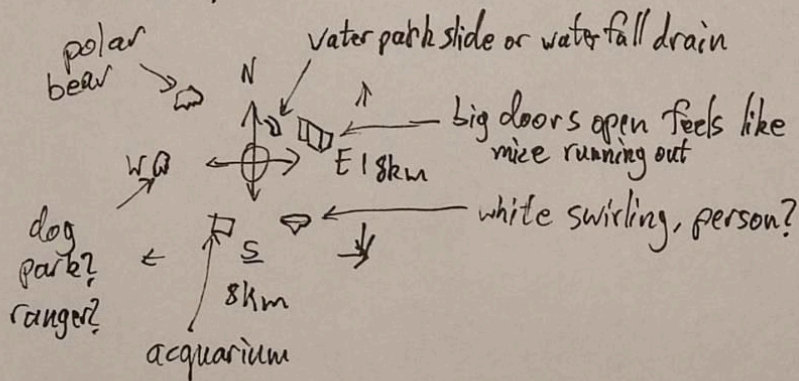 polar
bear
Vater park slide or waterfall drain
N
big doors open feels like
mice running out
W
E 18km
white swirling, person?
dog
park?
ranger?
S
8km
acquarium